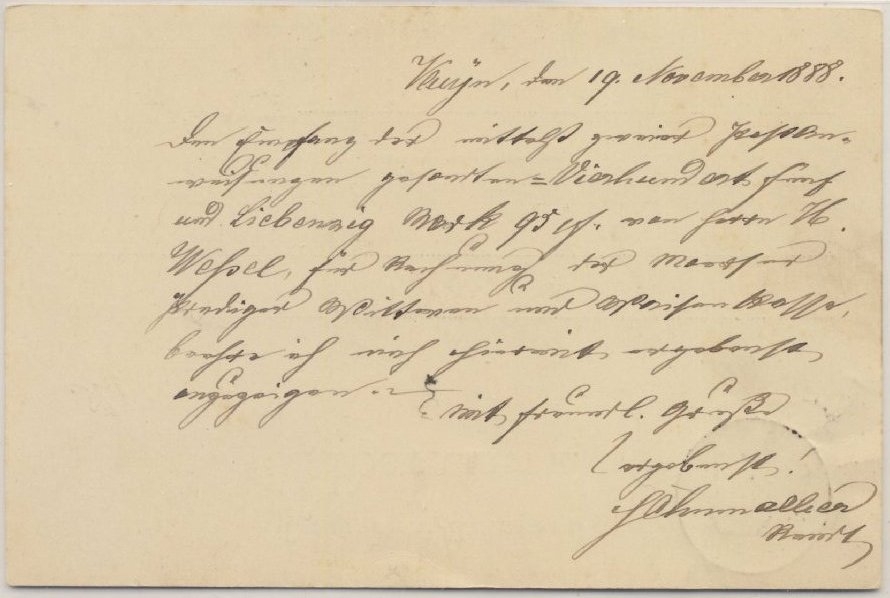 den 19. November 1888.
Den Empfang der mittelst zweier Postan-
weisungen gesandten = Vierhundert fünf
und Siebenzig Mark 95 pf. von Herrn H.
Weßel, für Rechnung der Moerser
Prediger Wittwen und Waisen Kasse,
beehre ich mich hiermit ergebenst
anzuzeigen. –
Mit freundl. Gruße
ergebenst!